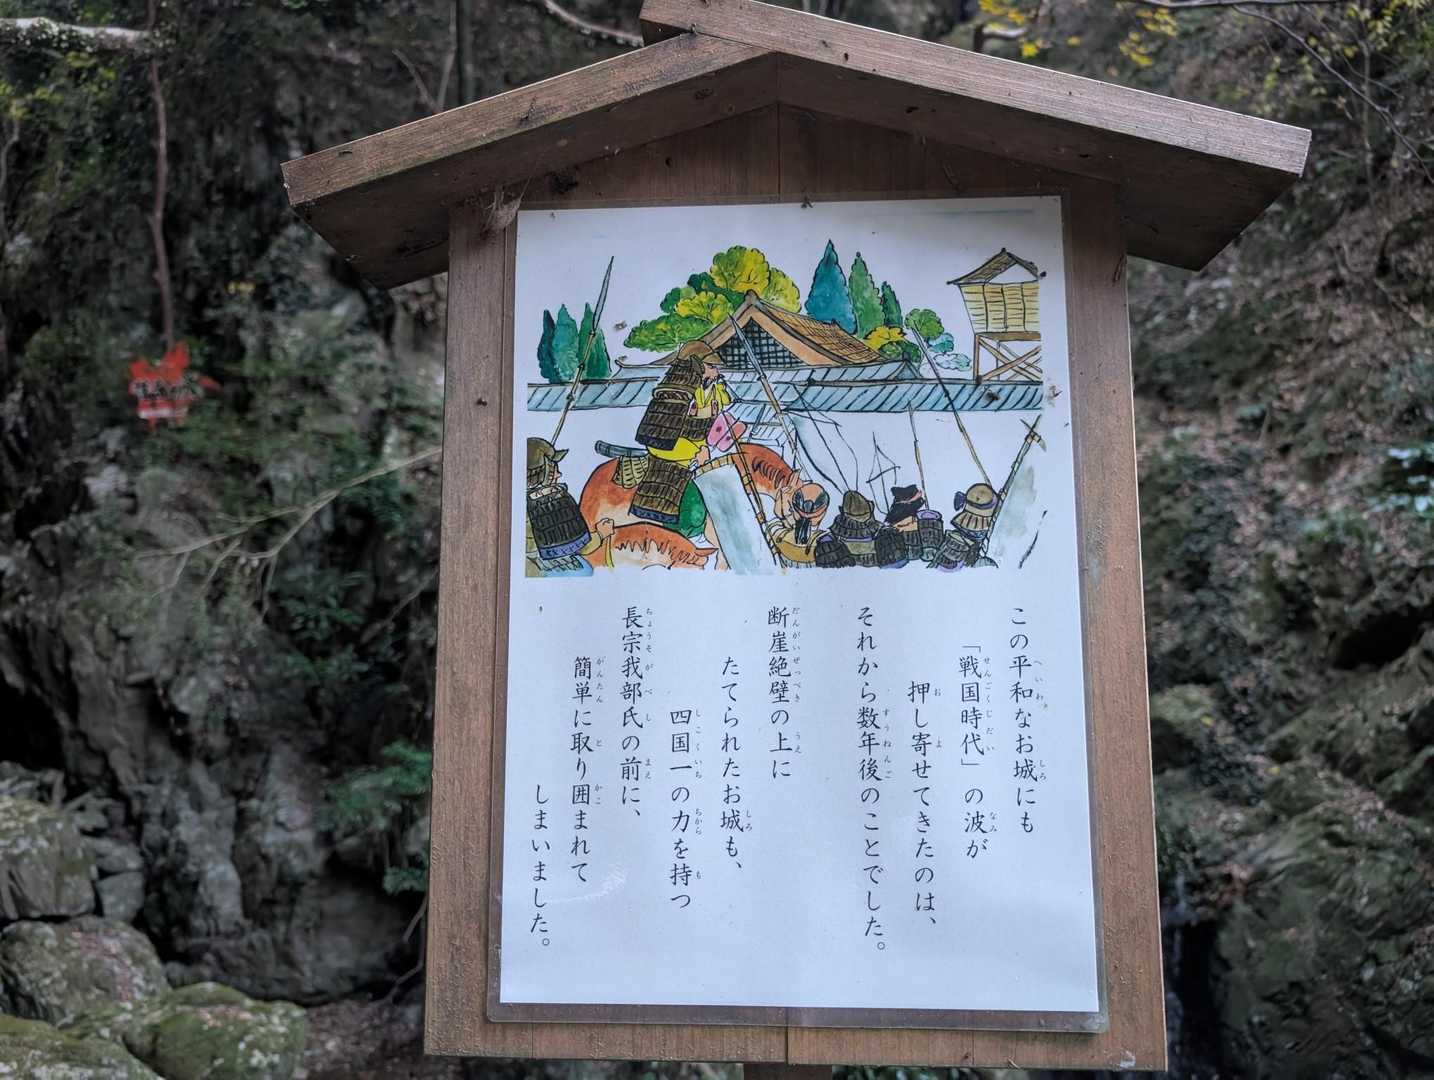 この平和なお城にも
「戦国時代」の波が
押し寄せてきたのは、
それから数年後のことでした。
断崖絶壁の上に
たてられたお城も、
四国一の力を持つ
長宗我部氏の前に、
簡単に取り囲まれて
しまいました。